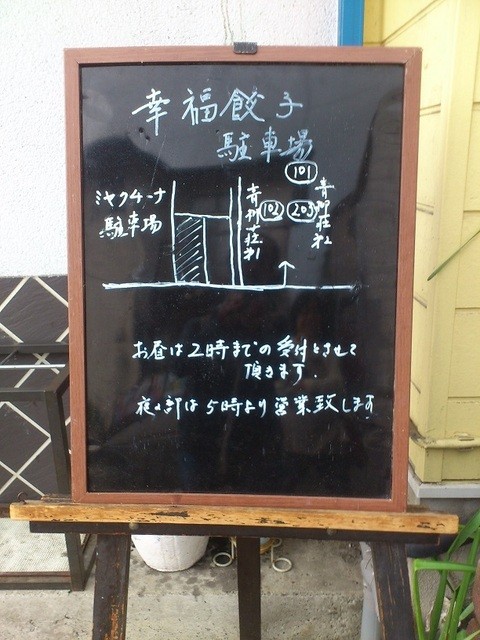 幸福餃子
駐車場
ミヤクチーナ
駐車場
青柳荘№1
101
102
203
青柳荘№2
お昼は2時までの受付とさせて
頂きます.
夜の部は5時より営業致します